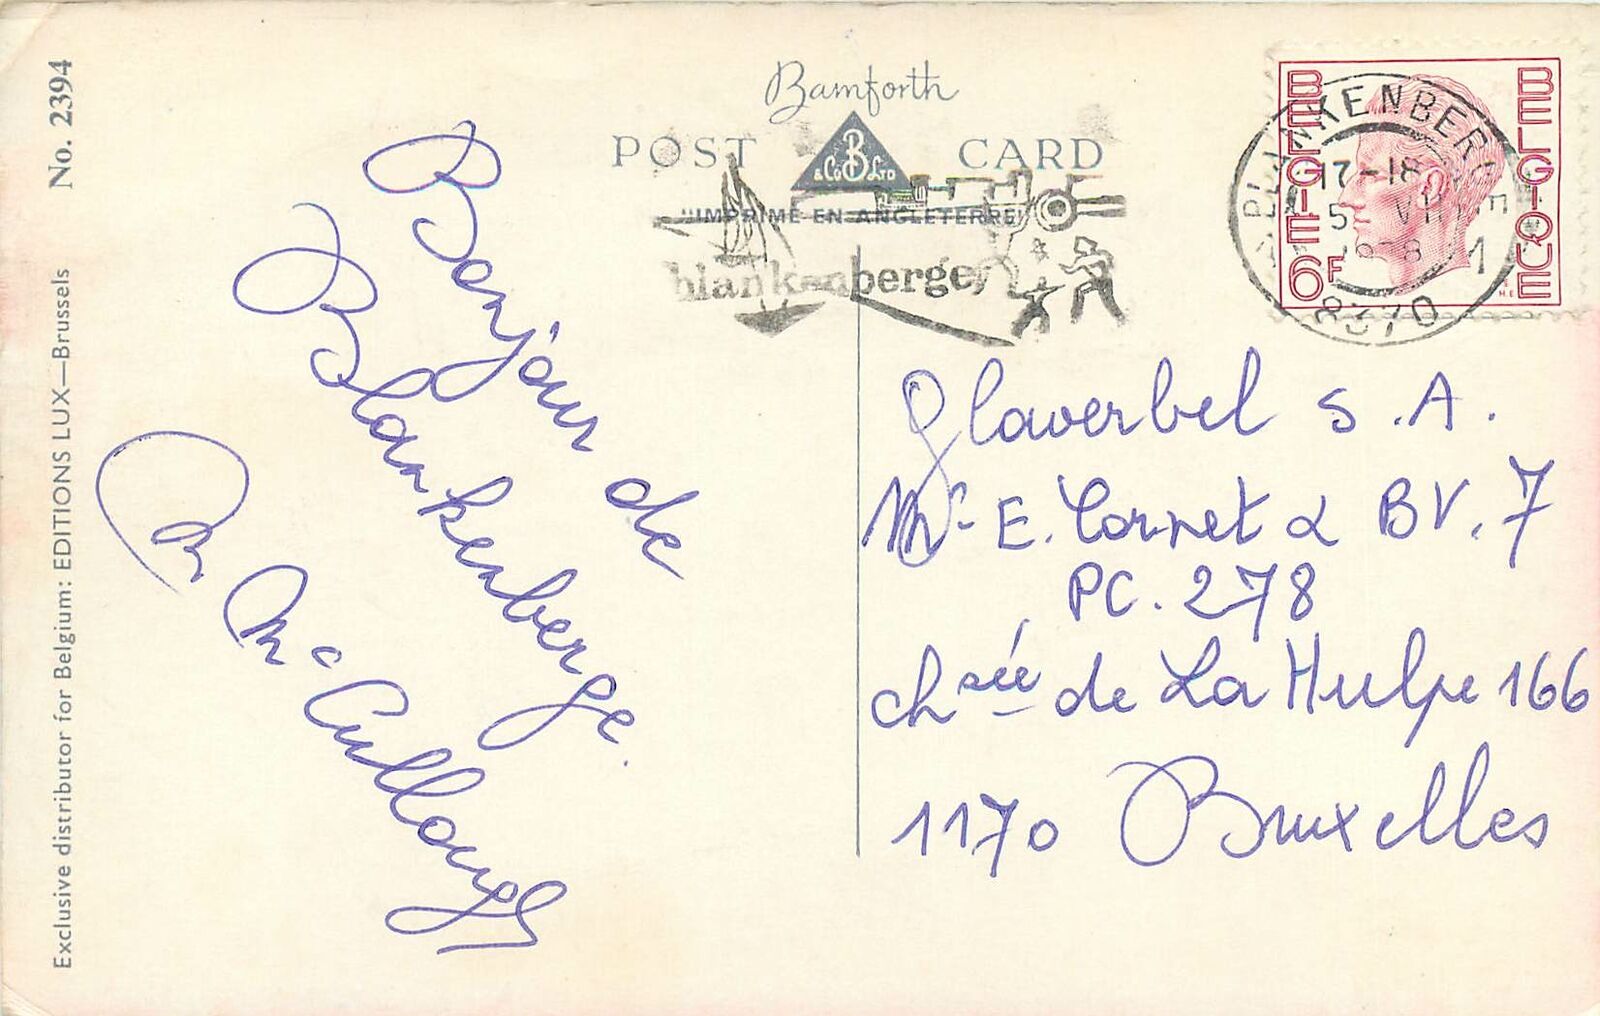 No. 2394
Exclusive distributor for Belgium: EDITIONS LUX—Brussels
Bamforth
POST CARD
B
& Co LTD
"IMPRIMÉ EN ANGLETERRE"
blankenberge
BELGIE BELGIQUE
6F
BLANKENBERGE
17-18
5 VIII
1
8370
Bonjour de
Blankenberge.
Mc Cullough
Glaverbel S.A.
Mr E. Cornet BV.7
PC. 278
chsée de La Hulpe 166
1170 Bruxelles